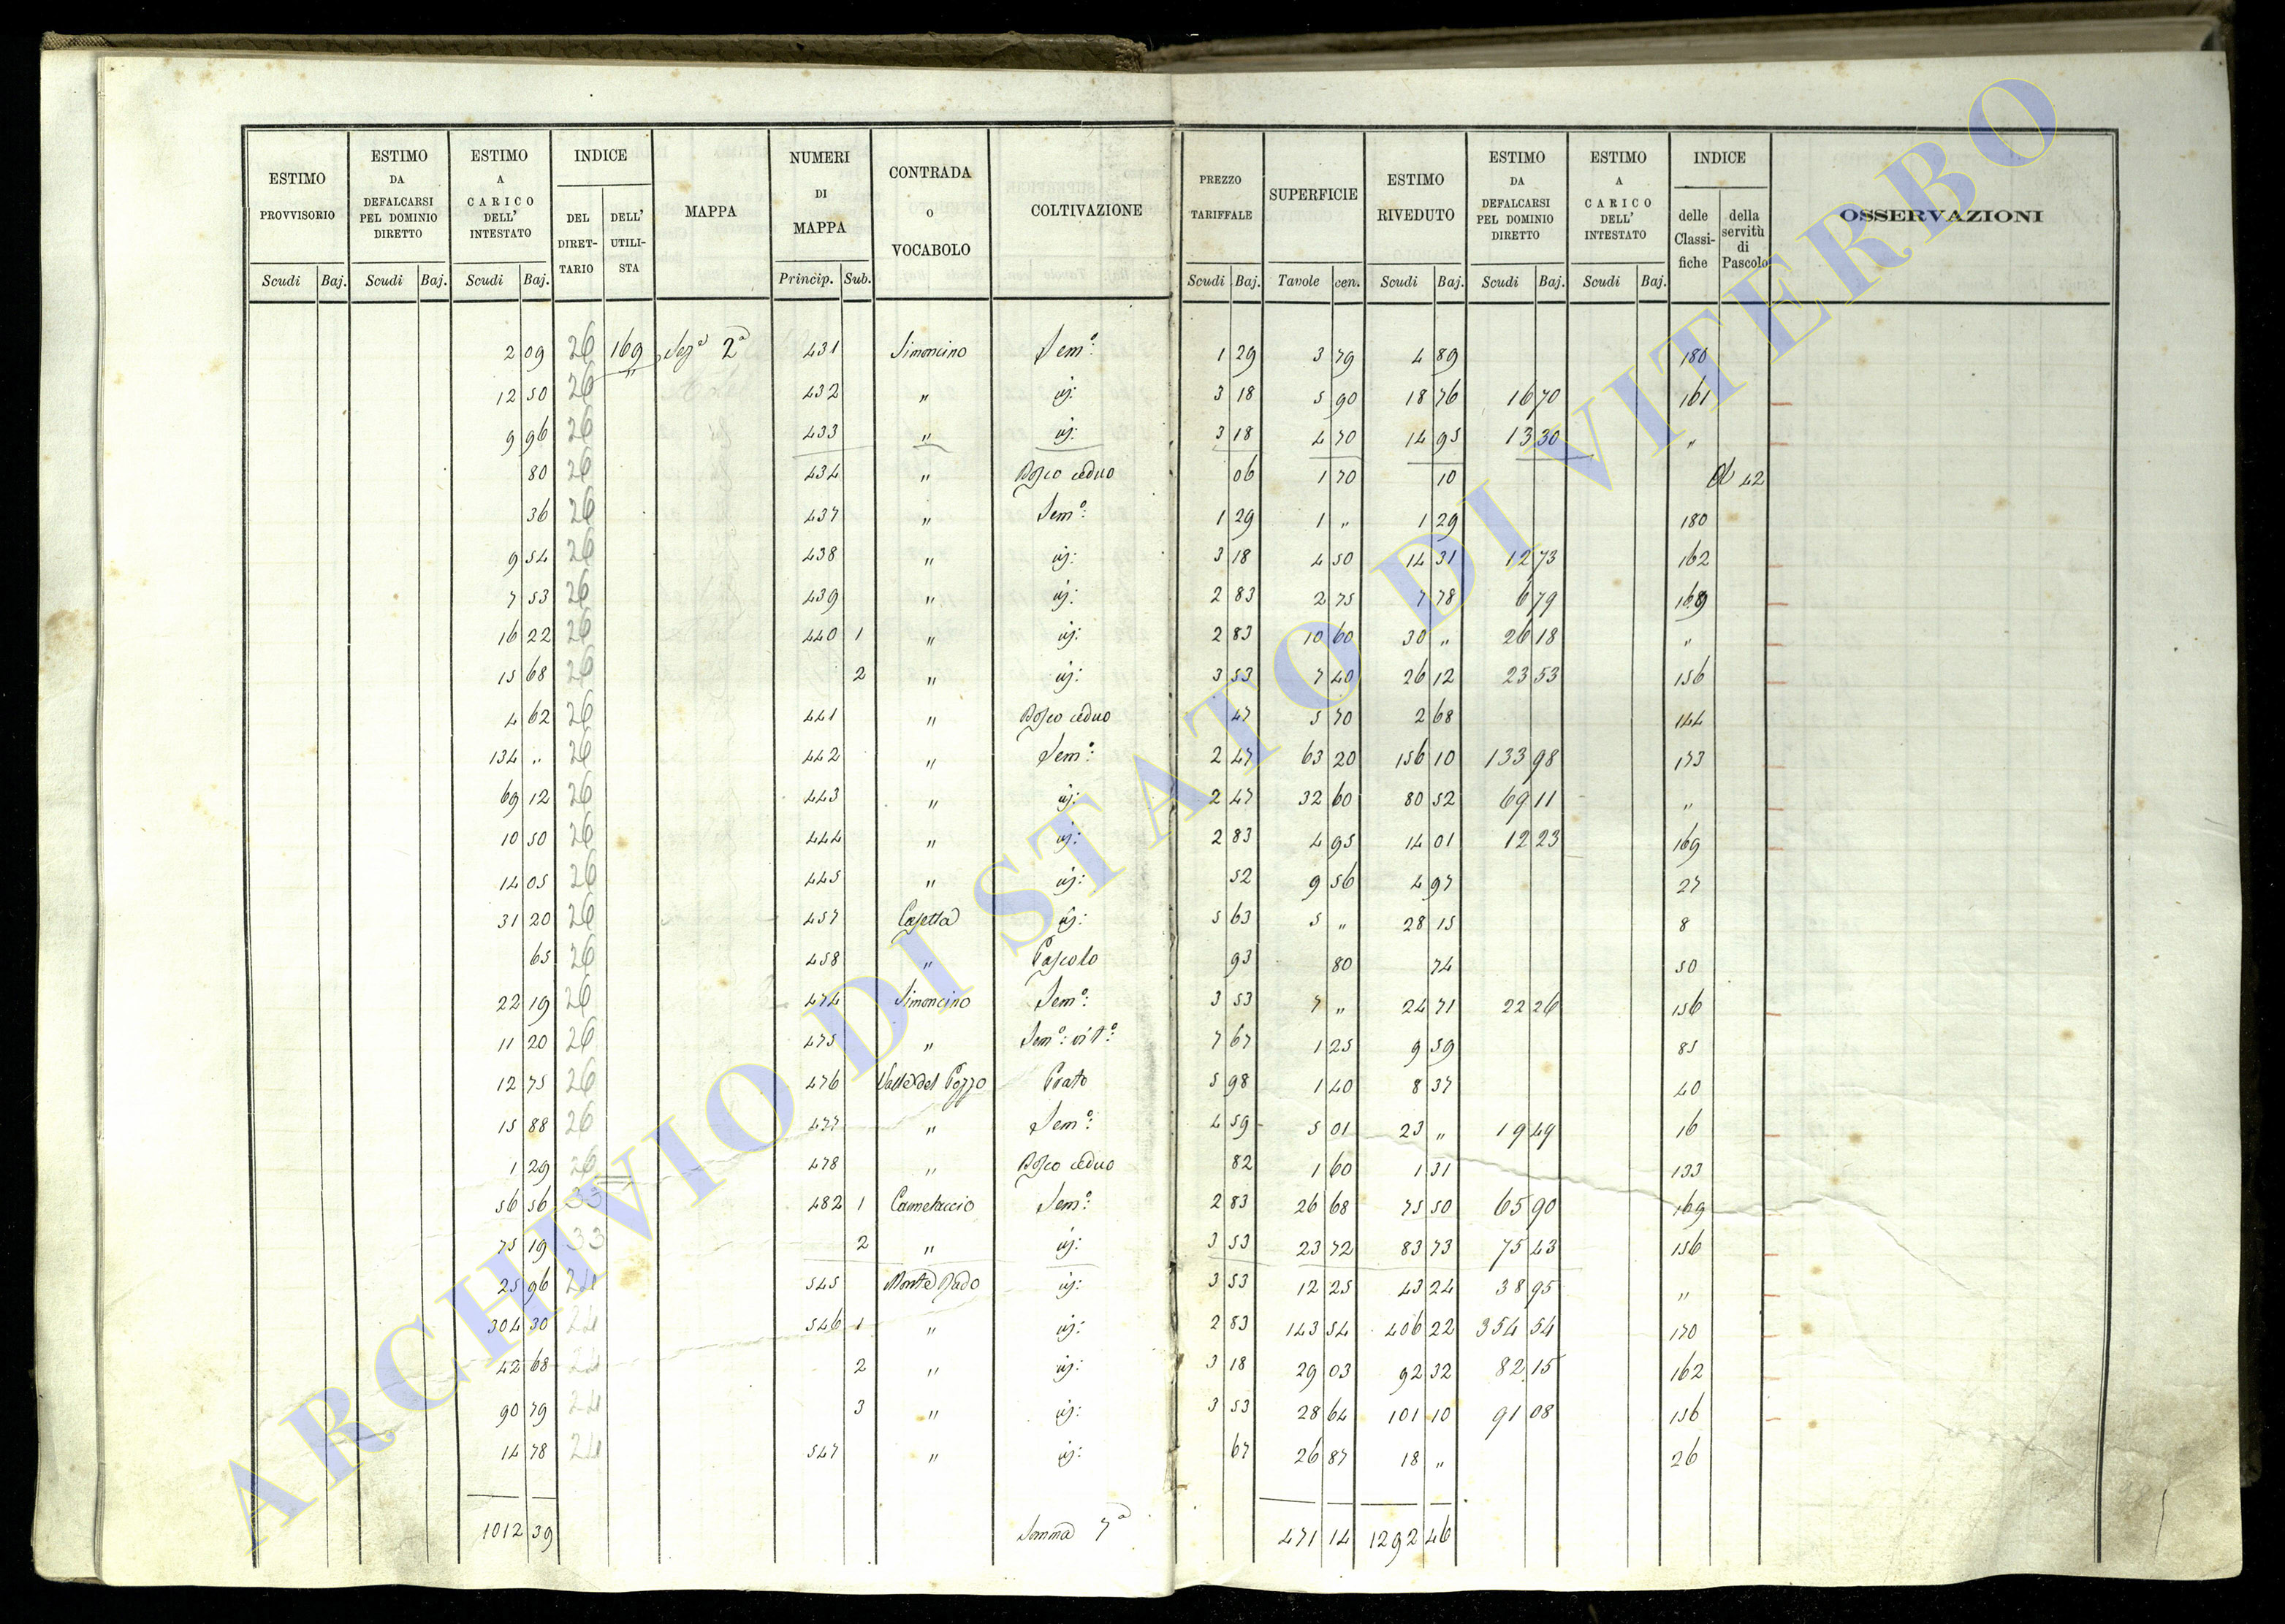 ESTIMO PROVVISORIO
Scudi Baj.
ESTIMO DA DEFALCARSI PEL DOMINIO DIRETTO
Scudi Baj.
ESTIMO A CARICO DELL' INTESTATO
Scudi Baj.
INDICE
DEL DIRET-TARIO
DELL' UTILI-STA
MAPPA
NUMERI DI MAPPA
Princip. Sub.
CONTRADA O VOCABOLO
COLTIVAZIONE
PREZZO TARIFFALE
Scudi Baj.
SUPERFICIE
Tavole cen.
ESTIMO RIVEDUTO
Scudi Baj.
ESTIMO DA DEFALCARSI PEL DOMINIO DIRETTO
Scudi Baj.
ESTIMO A CARICO DELL' INTESTATO
Scudi Baj.
INDICE
delle Classi-fiche
della servitù di Pascolo
OSSERVAZIONI
2 09 26 169 Sez.a 2a 431 Simoncino Sem.o: 1 29 3 79 4 89 180
12 50 26 " 432 " id: 3 18 5 90 18 76 16 70 161
9 96 26 433 " id: 3 18 4 70 14 95 13 30 "
80 26 434 " Bosco ceduo 06 1 70 10 42
36 26 437 " Sem.o: 1 29 1 " 1 29 180
9 54 26 438 " id: 3 18 4 50 14 31 12 73 162
7 53 26 439 " id: 2 83 2 75 7 78 6 79 169
16 22 26 440 1 " id: 2 83 10 60 30 " 26 18 "
15 68 26 2 " id: 3 53 7 40 26 12 23 53 156
4 62 26 441 " Bosco ceduo 47 5 70 2 68 144
134 " 26 442 " Sem.o: 2 47 63 20 156 10 133 98 173
69 12 26 443 " id: 2 47 32 60 80 52 69 11 "
10 50 26 444 " id: 2 83 4 95 14 01 12 23 169
14 05 26 445 " id: 52 9 56 4 97 27
31 20 26 457 Casetta id: 5 63 5 " 28 15 8
65 26 458 " Pascolo 93 80 74 50
22 19 26 474 Simoncino Sem.o: 3 53 7 " 24 71 22 26 156
11 20 26 475 " Sem.o: vit.o: 7 67 1 25 9 59 85
12 75 26 476 Valle del Pozzo Prato 5 98 1 40 8 37 40
15 88 26 477 " Sem.o: 4 59 5 01 23 " 19 49 16
1 29 26 478 " Bosco ceduo 82 1 60 1 31 133
56 56 33 482 1 Cametaccio Sem.o: 2 83 26 68 75 50 65 90 169
75 19 33 2 " id: 3 53 23 72 83 73 75 43 156
25 96 24 545 Monte Rado id: 3 53 12 25 43 24 38 95 "
304 30 24 546 1 " id: 2 83 143 54 406 22 354 54 170
42 68 24 2 " id: 3 18 29 03 92 32 82 15 162
90 79 24 3 " id: 3 53 28 64 101 10 91 08 156
14 78 24 547 " id: 67 26 87 18 " 26
1012 39 Somma 7a 471 14 1292 46
ARCHIVIO DI STATO DI VITERBO